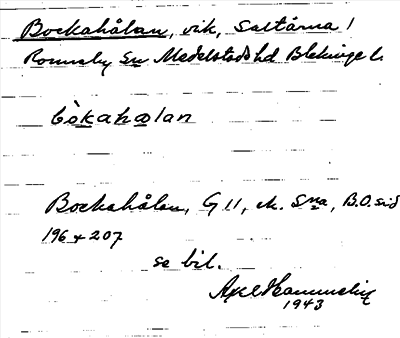 Bockahålan, vik, Saltärna 1
Ronneby Sn Medelstads hd Blekinge l.
bòkahålan
Bockahålan, G 11, vk. Sna, B.O. sid
196 + 207
se bil.
Axel
1943